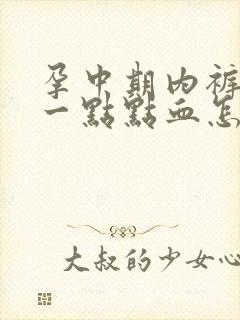 孕中期内裤
一點點血怎
大叔的少女心